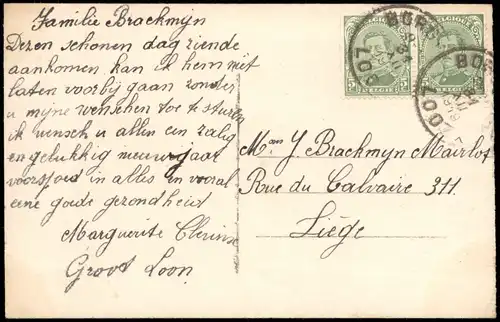 Familie Brackmyn
Dezen schonen dag ziende
aankomen kan ik hem niet
laten voorbij gaan zonder
u mijne wenschen toe te sturen
ik wensch u allen een zalig
en gelukkig nieuwjaar
voorspoed in alles in vooral
eene goede gezondheid
Marguerite
Groot Loon
BELGIQUE BELGIQUE
5 BELGIE 5 BELGIE
LOOZ
LOOZ
Man J. Brackmyn Mairlot
Rue du Calvaire 311.
Liège